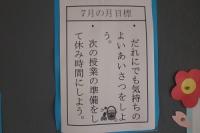 7月の月目標
だれにでも気持ちの
よいあいさつをしよ
う。
次の授業の準備をし
て休み時間にしよう。